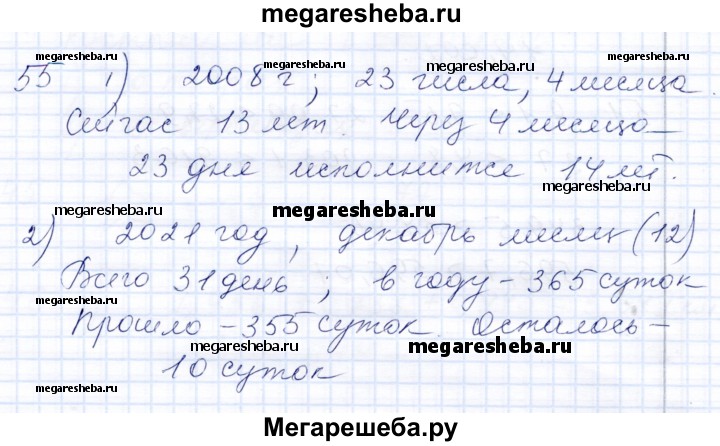 megaresheba.ru
megaresheba.ru megaresheba.ru
55 1) 2008 г; 23 числа, 4 месяца.
Сейчас 13 лет. Через 4 месяца
23 дня исполнится 14 лет.
megaresheba.ru
megaresheba.ru megaresheba.ru
2) 2021 год, декабрь месяц (12)
Всего 31 день; в году - 365 суток
megaresheba.ru megaresheba.ru
Прошло - 355 суток. Осталось -
megaresheba.ru
10 суток
megaresheba.ru
Мегарешеба.ру